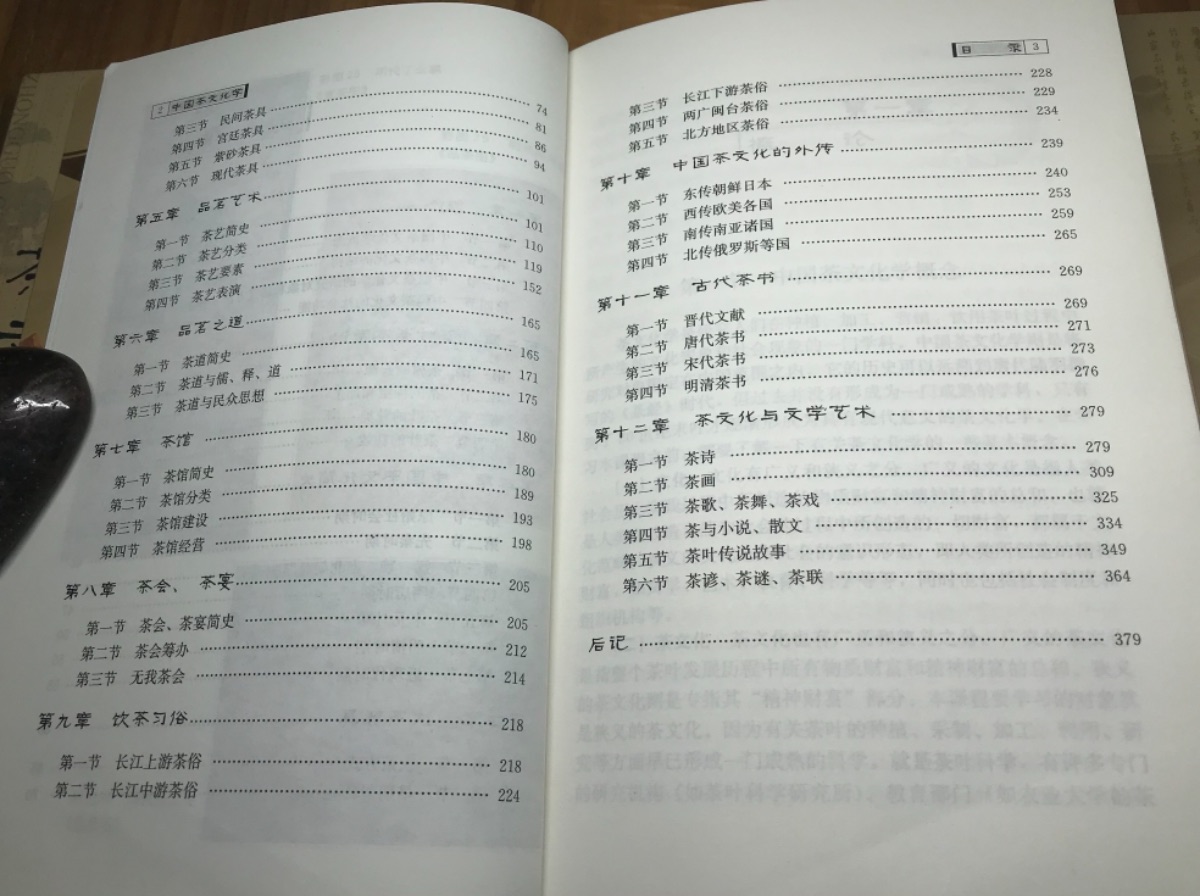 2 中国茶文化学
第三节 民间茶具 74
第四节 宫廷茶具 81
第五节 紫砂茶具 86
第六节 现代茶具 94
第五章 品茗艺术 101
第一节 茶艺简史 101
第二节 茶艺分类 110
第三节 茶艺要素 119
第四节 茶艺表演 152
第六章 品茗之道 165
第一节 茶道简史 165
第二节 茶道与儒、释、道 171
第三节 茶道与民众思想 175
第七章 茶馆 180
第一节 茶馆简史 180
第二节 茶馆分类 189
第三节 茶馆建设 193
第四节 茶馆经营 198
第八章 茶会、茶宴 205
第一节 茶会、茶宴简史 205
第二节 茶会筹办 212
第三节 无我茶会 214
第九章 饮茶习俗 218
第一节 长江上游茶俗 218
第二节 长江中游茶俗 224
目 录 3
第三节 长江下游茶俗 228
第四节 两广闽台茶俗 229
第五节 北方地区茶俗 234
第十章 中国茶文化的外传 239
第一节 东传朝鲜日本 240
第二节 西传欧美各国 253
第三节 南传南亚诸国 259
第四节 北传俄罗斯等国 265
第十一章 古代茶书 269
第一节 晋代文献 269
第二节 唐代茶书 271
第三节 宋代茶书 273
第四节 明清茶书 276
第十二章 茶文化与文学艺术 279
第一节 茶诗 279
第二节 茶画 309
第三节 茶歌、茶舞、茶戏 325
第四节 茶与小说、散文 334
第五节 茶叶传说故事 349
第六节 茶谚、茶谜、茶联 364
后记 379